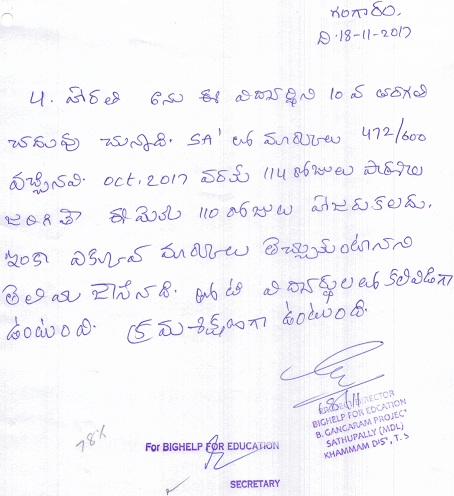 గంగారం.
ది. 18-11-2017
4. హారతి అను ఈ విద్యార్థిని 10 వ తరగతి
చదువు చున్నాది. SA' లో మార్కులు 472/600
వచ్చినవి. OCT. 2017 వరకు 114 రోజులు పాఠశాల
జరిగితే ఈమెకు 110 రోజులు హాజరుకలదు.
ఇంకా ఎక్కువ మార్కులు తెచ్చుకుంటానని
తెలియ జేసినది. తోటి విద్యార్థులలో కలివిడిగా
ఉంటుంది. క్రమశిక్షణగా ఉంటుంది.
18/11
DIRECTOR
BIGHELP FOR EDCATION
B. GANGARAM PROJECT
SATHUPALLY (MDL)
KHAMMAM DIST, T.S
78%
For BIGHELP FOR EDUCATION
SECRETARY